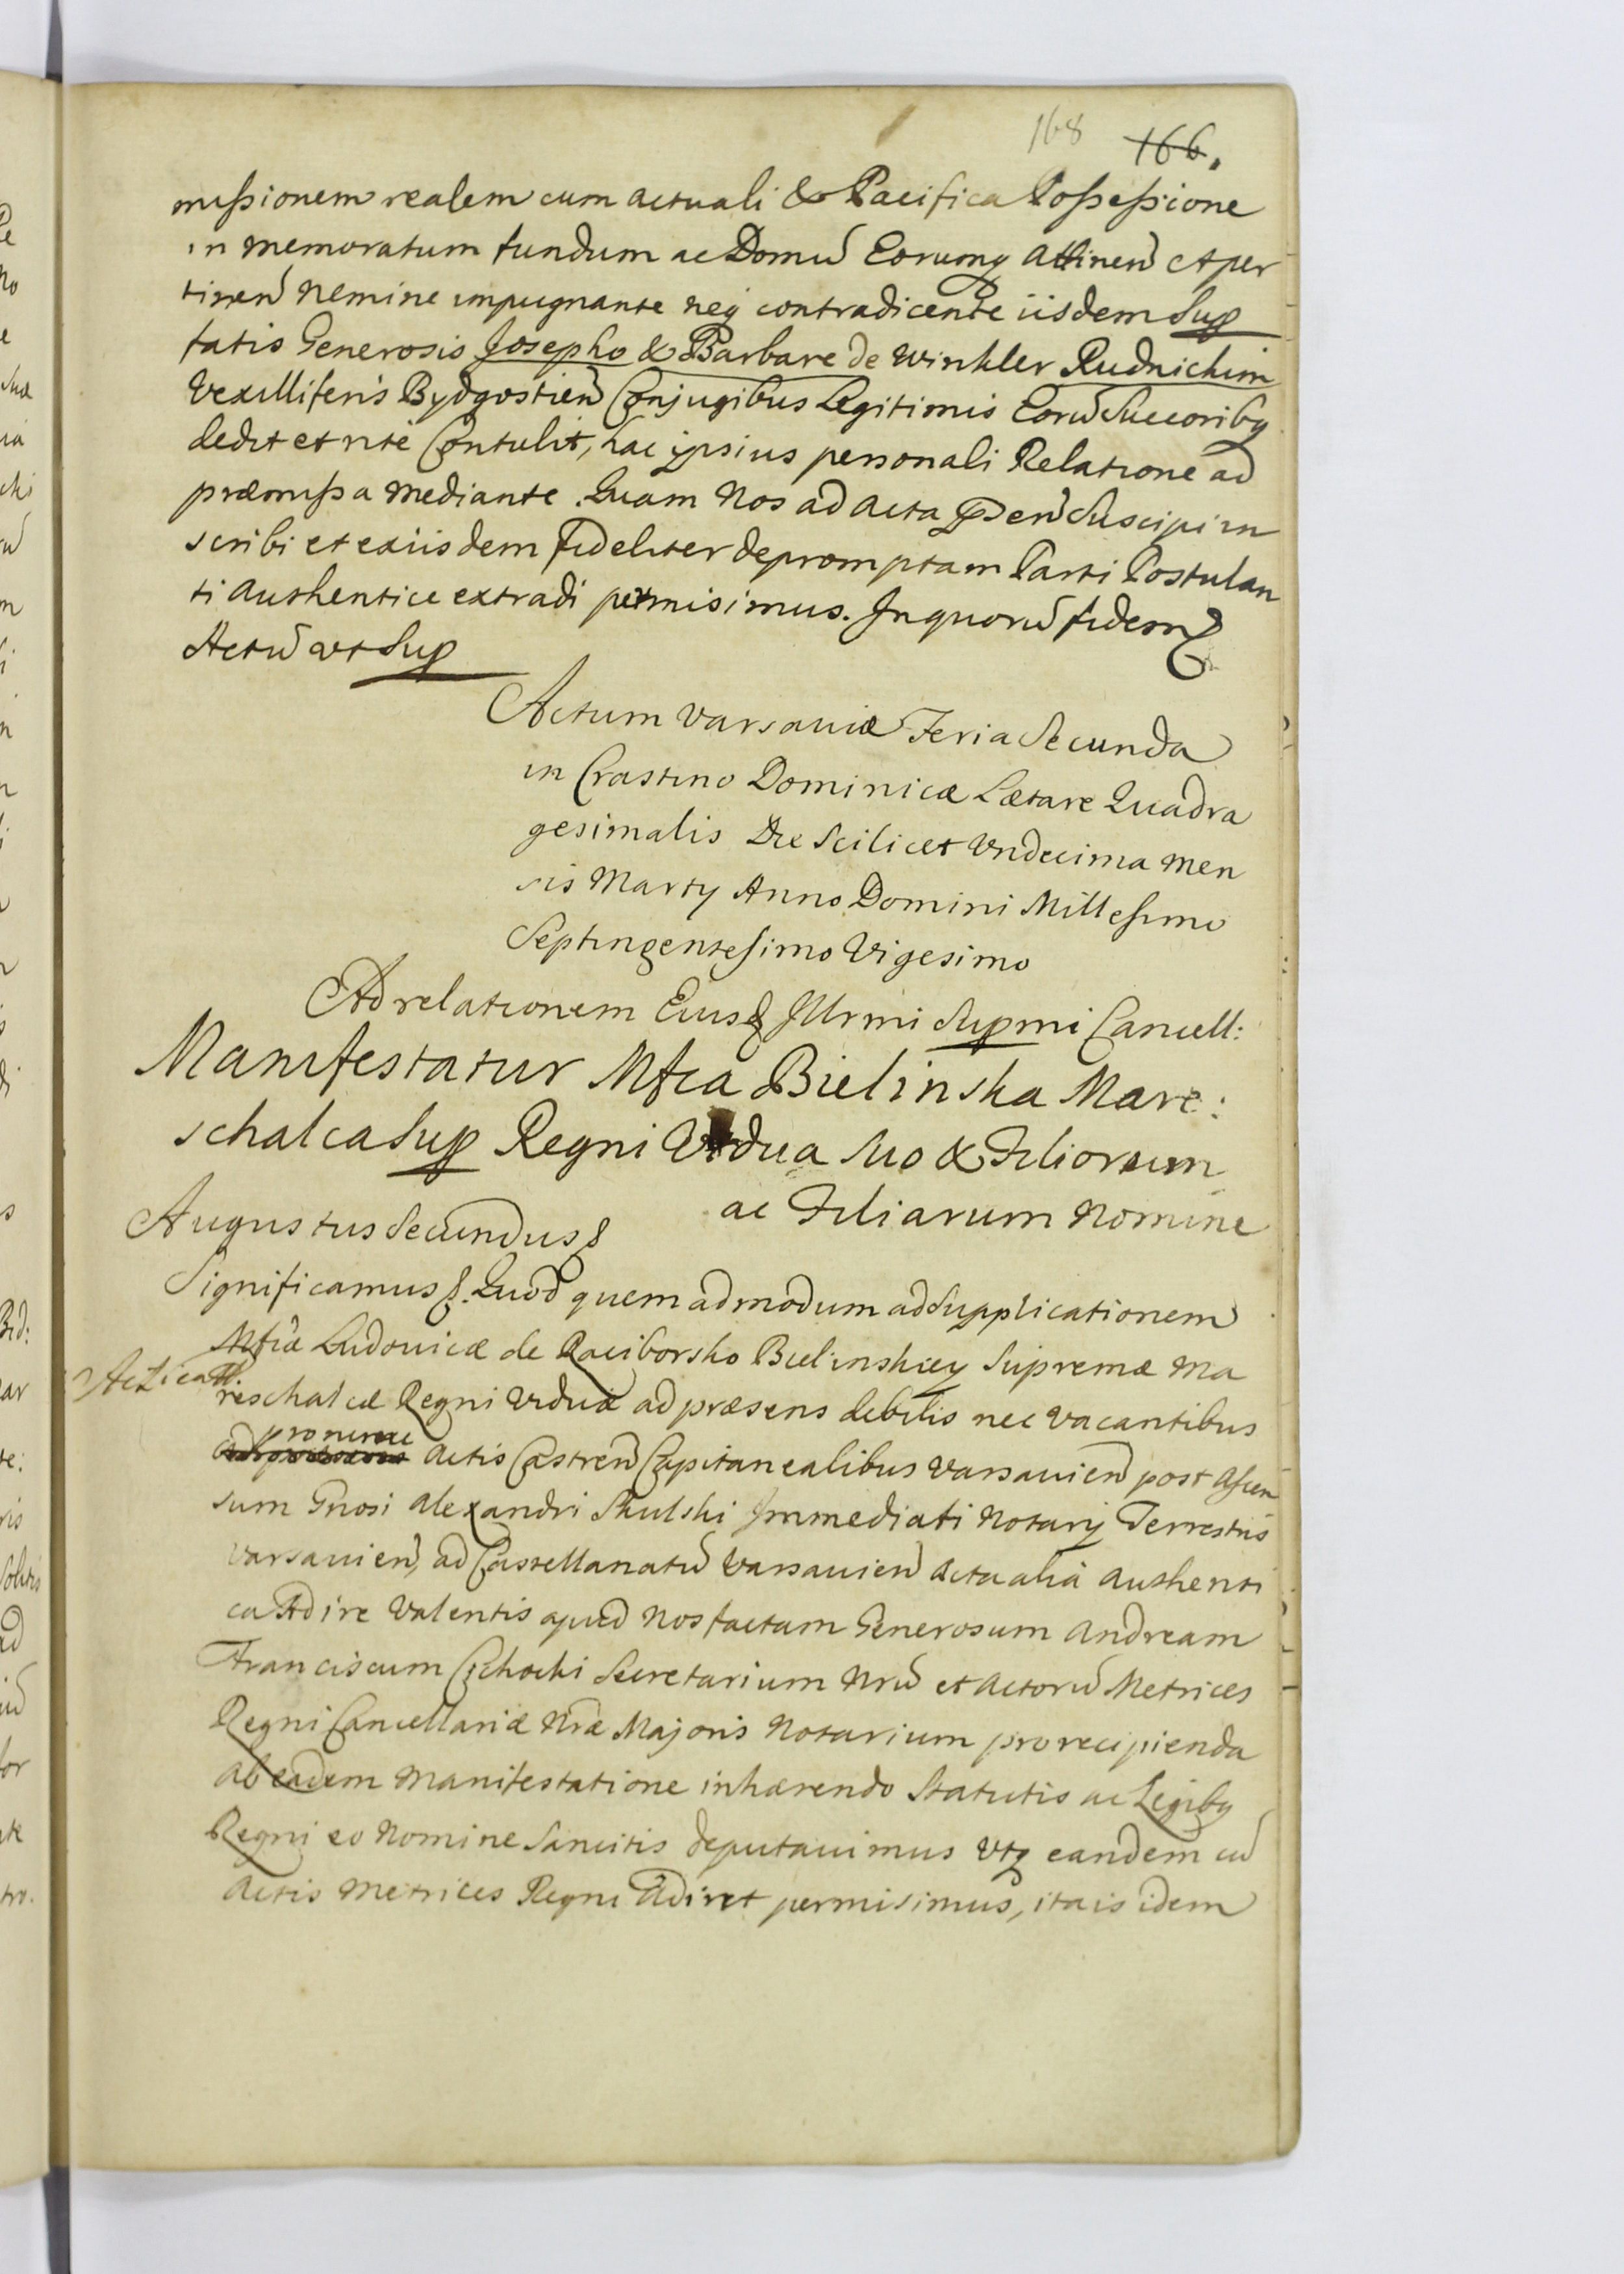 168 166.
missionem realem cum actuali & Pacifica Possessione
in memoratum fundum ac Domũ Eorumq Attinen̄ et per
tinen̄ nemine impugnante neq contradicente iisdem Sup
tatis Generosis Josepho & Barbare de Winkler Rudnickim
Vexilliferis Bydgostien̄ Conjugibus Legitimis Eorũ Succoribq
dedit et rite Contulit, hac ipsius personali Relatione ad
præmissa mediante. Quam Nos ad acta Pn̄ Suscipi in
scribi et exiisdem fideliter depromptam Parti Postulan
ti authentice extradi permisimus. In quorũ fidem &
Actũ ut Sup
Actum Varsaviæ Feria Secunda
in Crastino Dominicæ Lætare Quadra
gesimalis Die Scilicet Undecima Men
sis Martij Anno Domini Millesimo
Septingentesimo Vigesimo
Ad relationem Eiusd Illrmi Supmi Cancell:
Manifestatur Mfca Bielinska Mare:
schalca Sup Regni Vidua suo & Filiorum
ac Filiarum Nomine
Augustus Secundus &
Significamus &. Quod quemadmodum ad Supplicationem
Mficæ Ludovicæ de Raciborsko Bielinskiey Supremæ Ma
reschalcæ Regni Viduæ ad præsens debilis nec vacantibus
pro nunc actis Castren̄ Capitanealibus Varsavien̄ post Ascen
sum Gnosi Alexandri Skulski Immediati Notarij Terrestris
Varsavien̄, ad Castellanatũ Varsavien̄ acta alia authenti
ca Adire Valentis apud Nos factam Generosum Andream
Franciscum Cichocki Secretarium Nrũ et Actorũ Metrices
Regni Cancellariæ Nræ Majoris Notarium pro recipienda
ab eadem Manifestatione inhærendo Statutis ac Legibq
Regni eo Nomine Sancitis deputavimus Utq eandem cũ
Actis Metrices Regni Adiret permisimus, ita is idem